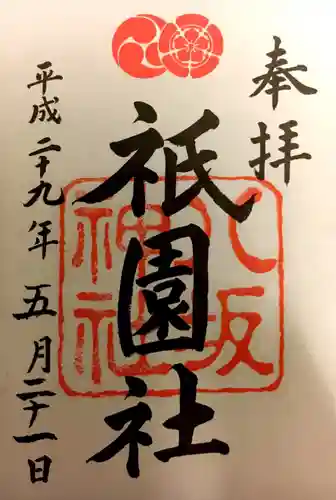 奉拝
八坂
神社
祇園社
平成二十九年五月二十一日